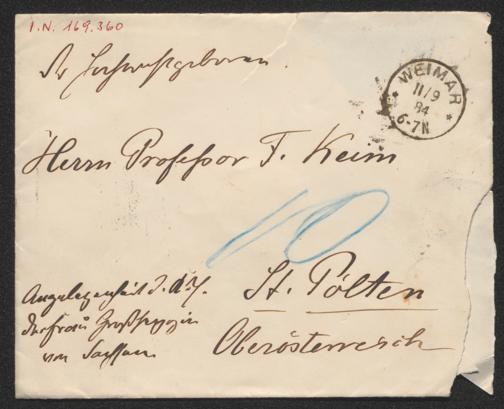 I.N. 169.360
Sr Hochwohlgeboren
WEIMAR
11/9
84
6-7N
Herrn Professor F. Keim
10
St. Pölten
Oberösterreich
Angelegenheit d.
der Frau Großherzogin
von Sachsen